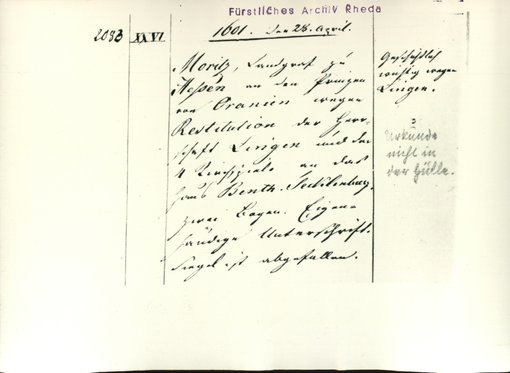 Fürstliches Archiv Rheda
2083 XXVI 1601. den 28. April.
Moritz, Landgraf zu
Hessen an den Prinzen
von Oranien wegen
Restitution der Herr-
schaft Lingen und der
4 Kirchspiele an das
Haus Benth. Tecklenburg.
zwei Bogen. Eigen-
händige Unterschrift.
Siegel ist abgefallen.
Geschichtlich
wichtig wegen
Lingen.
Urkunde
nicht in
der Hülle.